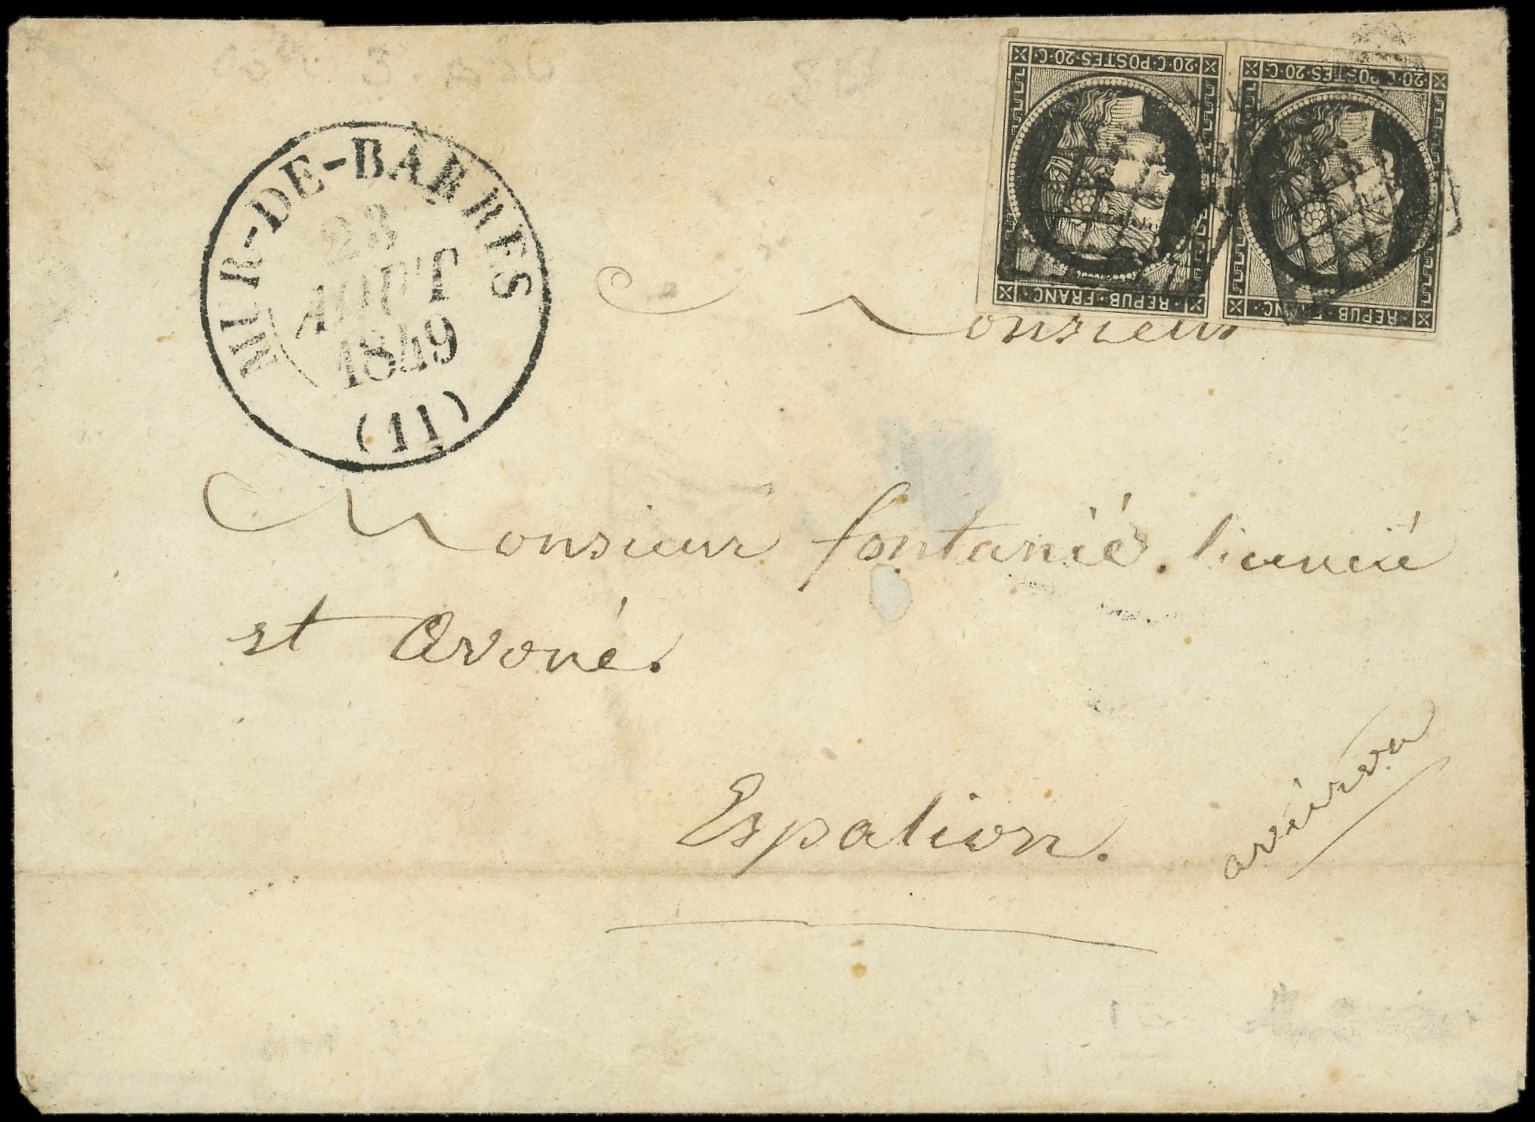 MUR-DE-BARRES
23
AOUT
1849
(11)
20·C·POSTES·20·C
REPUB·FRANC
20·C·POSTES·20·C
REPUB·FRANC
Monsieur
Monsieur fontanié. licencié
et avoué.
Espalion.